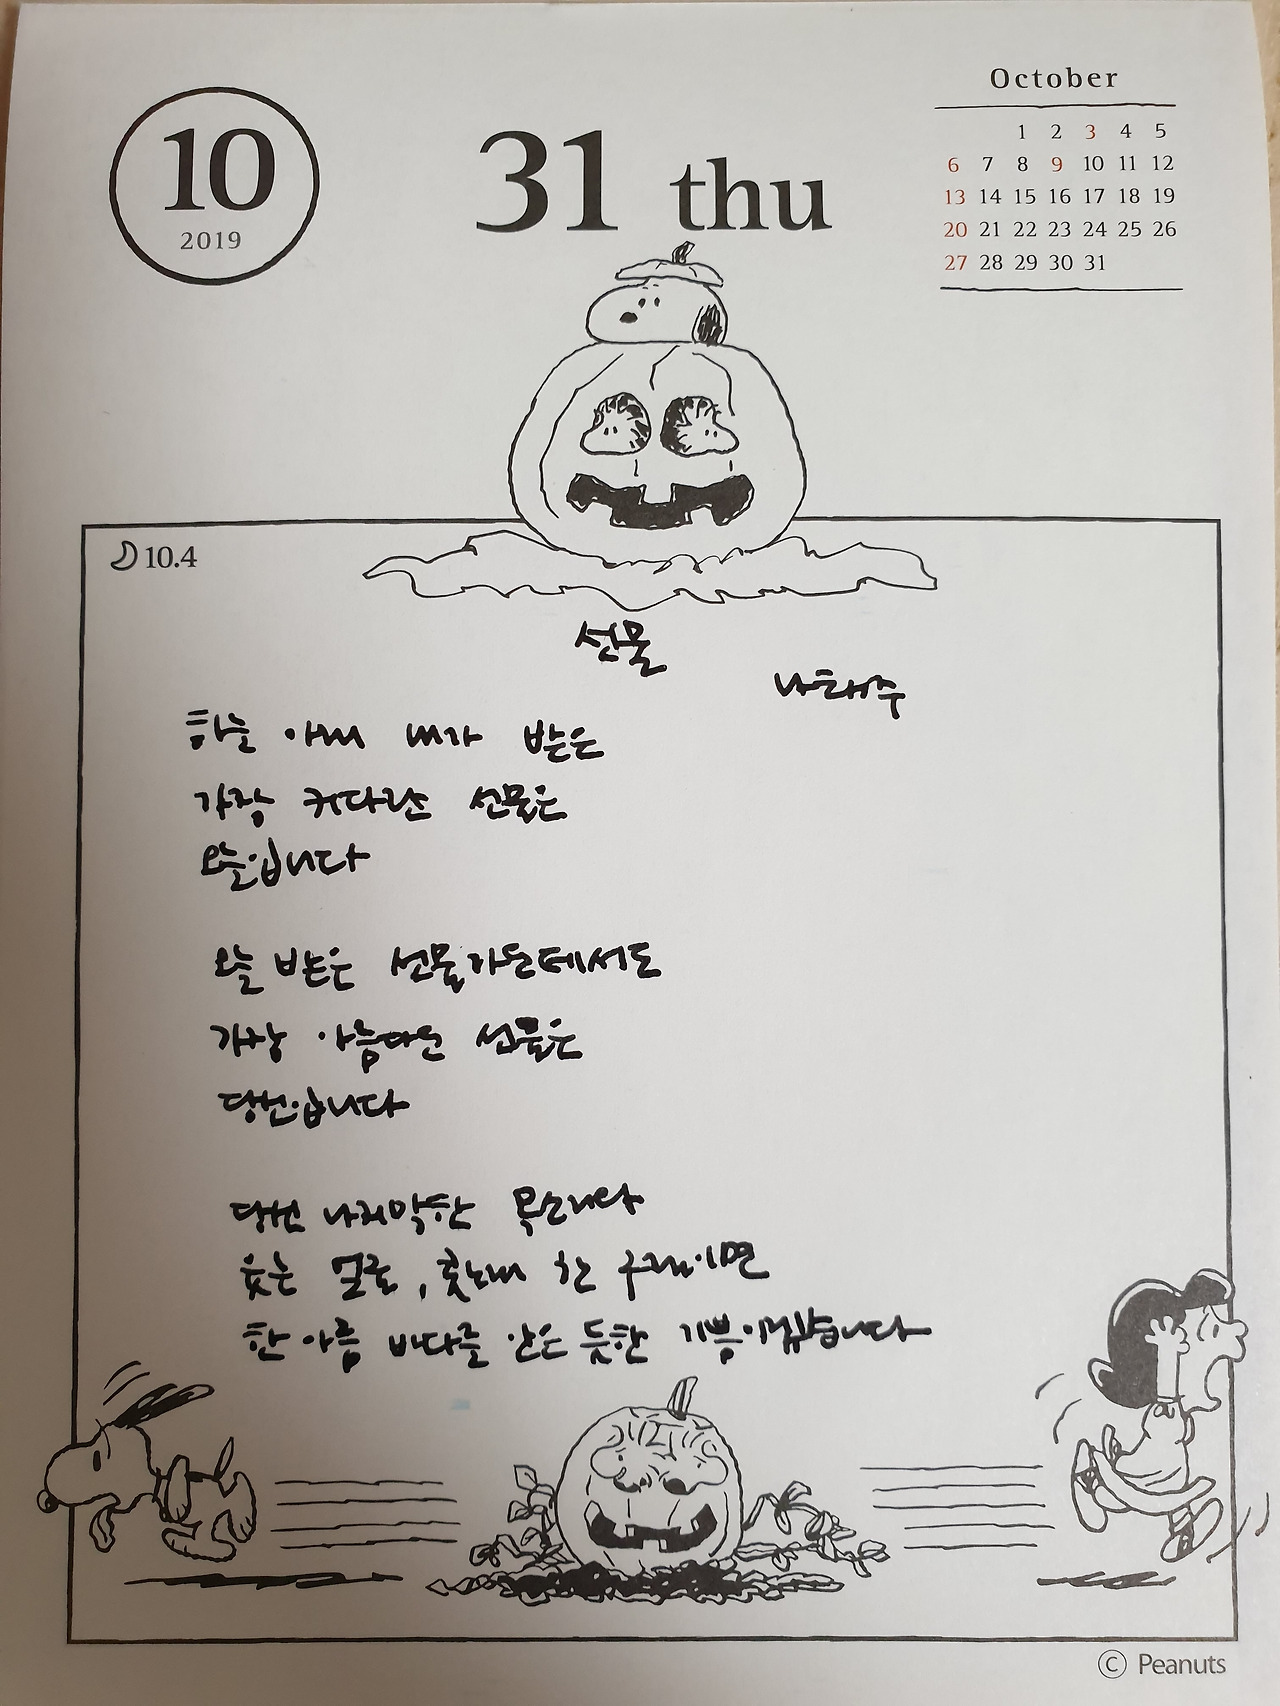 10
2019
31 thu
October
1 2 3 4 5
6 7 8 9 10 11 12
13 14 15 16 17 18 19
20 21 22 23 24 25 26
27 28 29 30 31
10.4
선물
나태주
하늘 아래 내가 받은
가장 커다란 선물은
오늘입니다
오늘 받은 선물가운데서도
가장 아름다운 선물은
당신입니다
당신 나지막한 목소리와
웃는 얼굴, 콧노래 한 구절이면
한 아름 바다를 안은 듯한 기쁨이겠습니다
© Peanuts